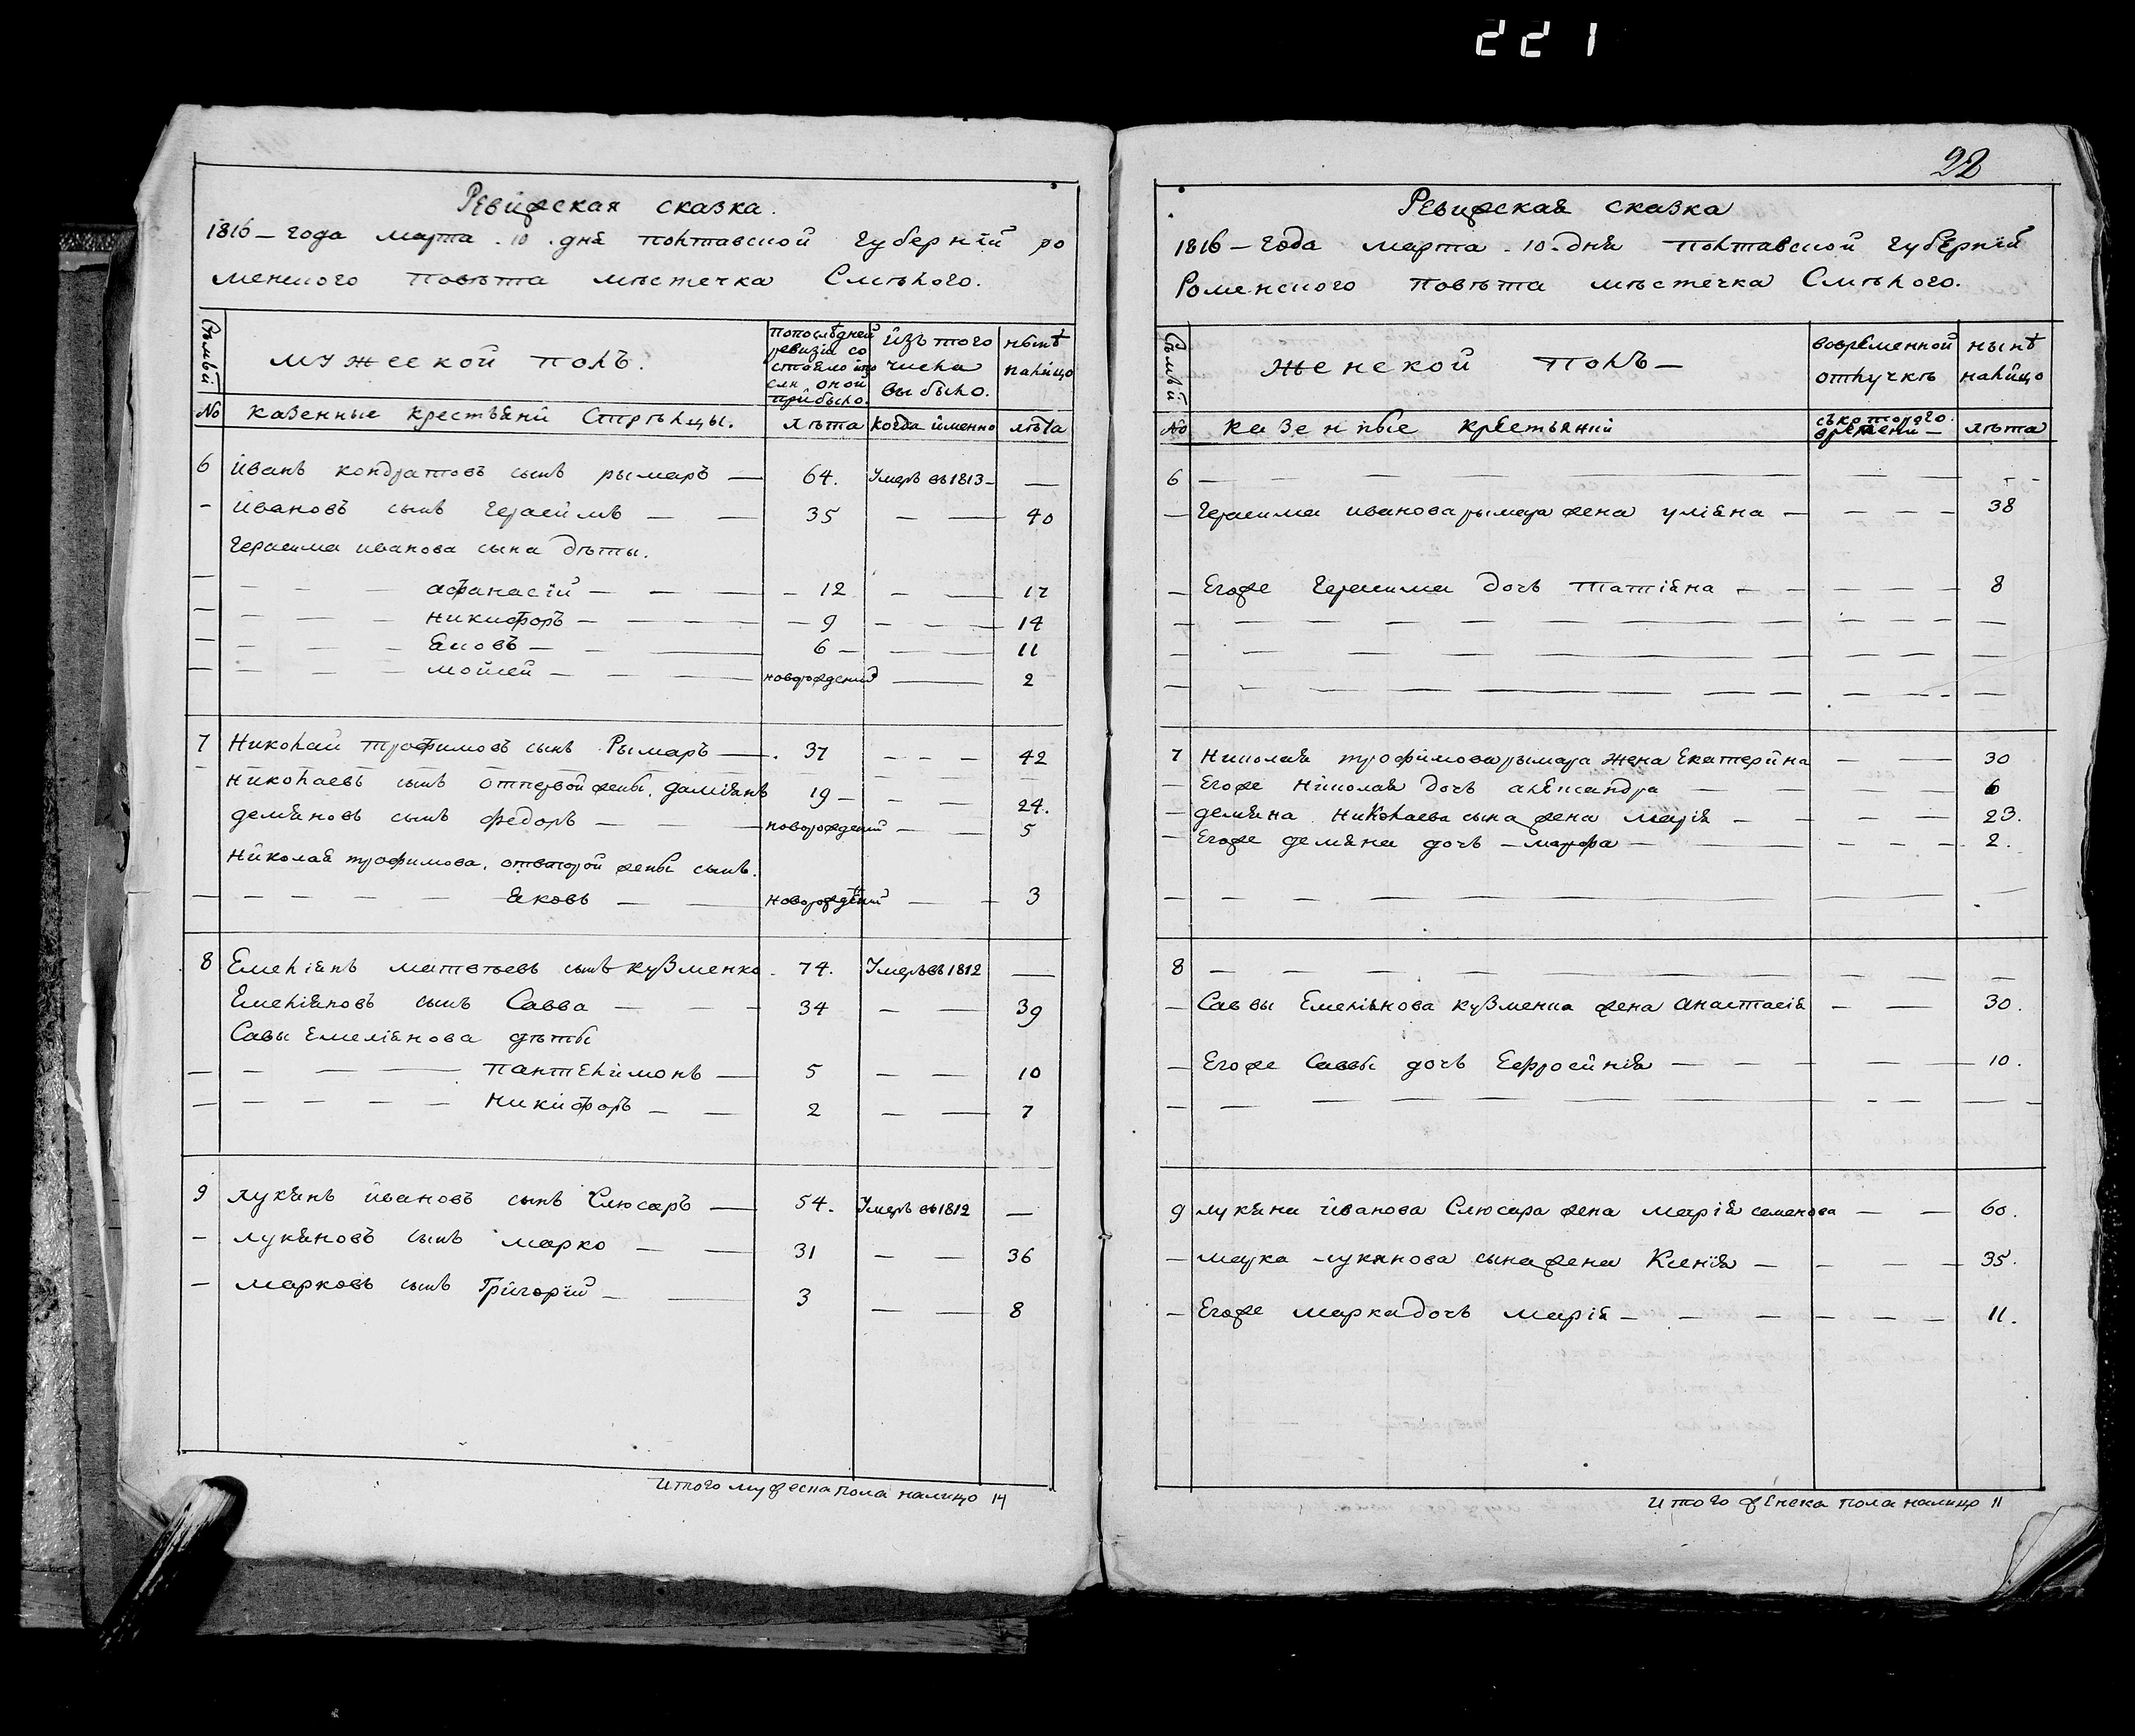 221
Ревижская сказка.
1816 – года марта . 10 . дня полтавской губернїй ро
менского повѣта мѣстечка Смѣлого.
Сѣмьй
мужеской полъ.
попослѣдней ревизїи со стояло или сля оной прибыло.
ѝзъ того числа выбыло.
нынѣ налицо
No казенные крестьяни Стрѣлцы.
лѣта когда именно лѣта
6 иванъ кондратовъ сынъ рымаръ — 64. Умеръ въ 1813 – —
– ивановъ сынъ герасимъ — — 35 — — 40
герасима иванова сына дѣты.
— — — — афанасїй — — — 12 — — 17
— — — — никифоръ — — — 9 — — 14
— — — — яковъ — — — 6 — — 11
— — — — мойсей — — — новорожденний — 2
7 Николай трофимовъ сынъ Рымаръ — 37 — — — 42
– николаевъ сынъ отпервой жены, даміянъ 19 — — — 24.
демяновъ сынъ федоръ — — новорожденний — — 5
николая трофимова, отвторой жены сынъ.
— — — — — яковъ — — новорожденний — — 3
8 Емеліянъ матвѣевъ сынъ кузменко. 74. Умеръ въ 1812 —
Емеліяновъ сынъ Савва — — — 34 — — 39
Савы Емеліянова дѣты
— — — — пантелимонъ — 5 — — 10
— — — — — никифоръ — — 2 — — 7
9 лукянъ ивановъ сынъ Слюсаръ — 54. Умеръ въ 1812 —
– лукяновъ сынъ марко — — 31 — — 36
– марковъ сынъ Григорїй — — 3 — — 8
Итого мужеска пола налицо 14
22
Ревижская сказка
1816 – года марта . 10 . дня полтавской губернїй
Роменского повѣта мѣстечка Смѣлого.
Сѣмьй
женской полъ –
вовременной отлучкѣ
нынѣ налицо
No казенные крестьянии
съкоторого времени – лѣта
6 — — — — — — — —
— герасима иванова рымара жена уліяна — — — — 38
— Егоже герасима дочь татіяна — — — — — 8
— — — — — — — — — — —
— — — — — — — — —
— — — — — — — — — — —
7 николая трофимова рымара жена Екатерина — — 30
— Егоже николая дочь александра — — — — 6
— демяна николаева сына жена марія — — — — 23.
— Егоже демяна дочь – марфа — — — — — 2.
— — — — — — — — — —
8 — — — — — — — — — —
— Саввы Емеліянова кузменка жена анастасія — — 30.
— Егоже Саввы дочь Ефросинія — — — — — 10.
— — — — — — — — — — —
9 лукяна иванова Слюсара жена марія семенова — — 60.
— марка лукянова сына жена Ксенїя — — — — 35.
— Егоже марка дочь марія — — — — — — 11.
Итого женска пола налицо 11